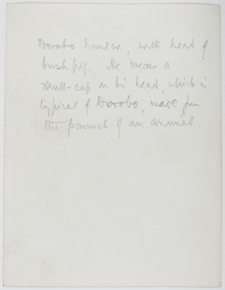 Dorobo hunter, with head of
bush pig. He wears a
skull-cap on his head, which is
typical of Dorobo, made from
the paunch of an animal.